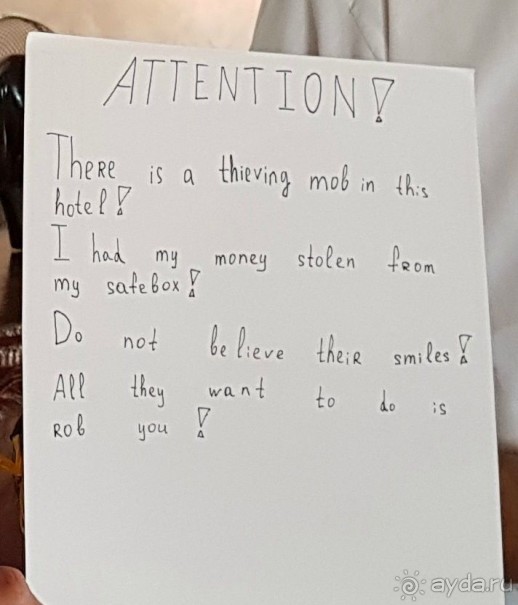 ATTENTION!
There is a thieving mob in this
hotel!
I had my money stolen from
my safebox!
Do not believe their smiles!
All they want to do is
Rob you!
ayda.ru